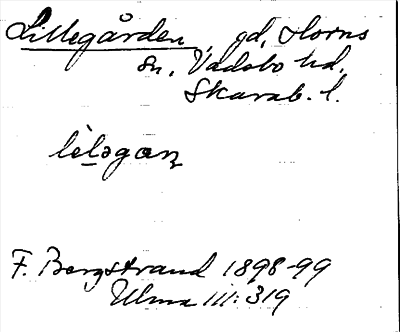 Lillegården, gd, Horns
sn, Vadsbo hd,
Skarab. l.
lèləgaɳ
F. Bergstrand 1898-99
Ulma III: 319